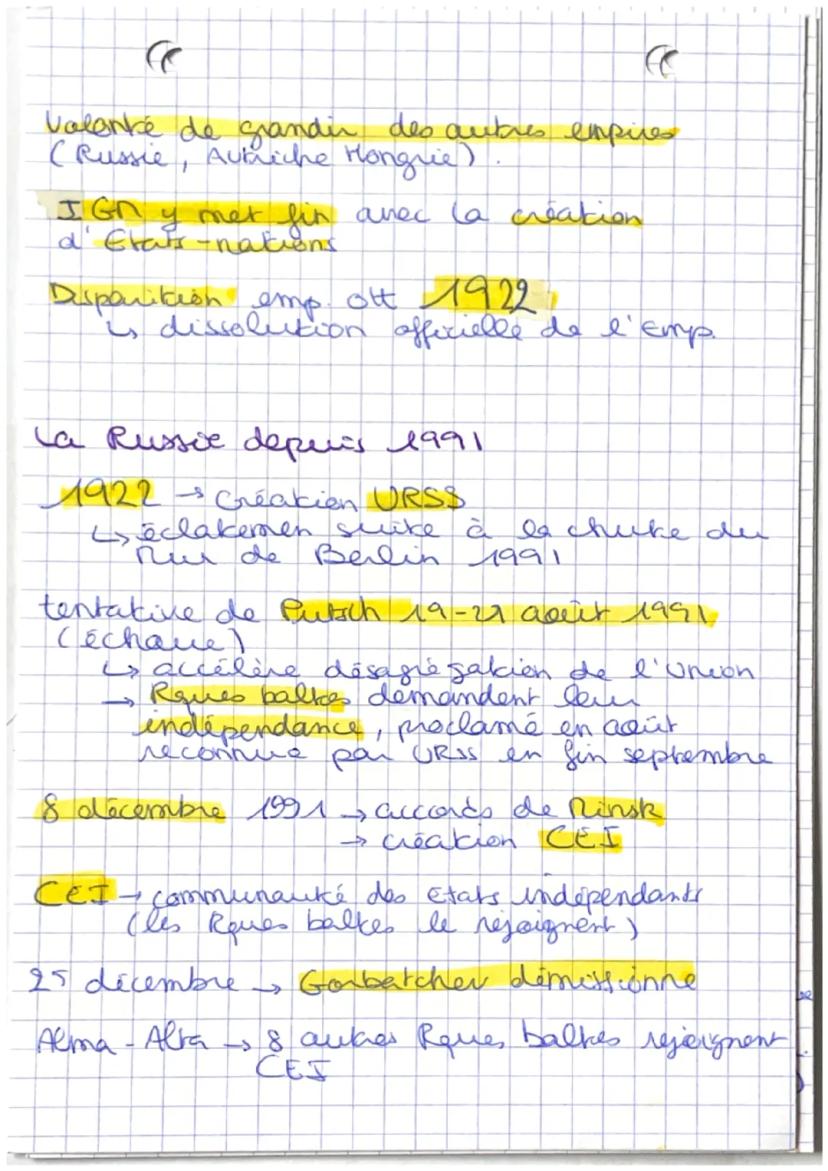 Volonté de grandir des autres empires
(Russie, Autriche Hongrie).
I GM y met fin avec la création
d'Etats-nations
Disparition emp. ott 1922
↳ dissolution officielle de l'emp.
La Russie depuis 1991
1922 → Création URSS
↳ éclatemen suite à la chute du
mur de Berlin 1991
tentative de Putsch 19-21 août 1991
(échoue)
↳ accélère désagrégation de l'Union
→ Rques baltes demandent leur
indépendance, proclamé en août
reconnue par URSS en fin septembre
8 décembre 1991 → accords de Minsk
→ création CEI
CEI → communauté des Etats indépendants
(les Rques baltes le rejoignent)
25 décembre → Gorbatchev démissionne
Alma-Alta → 8 autres Rques baltes rejoignent
CEI